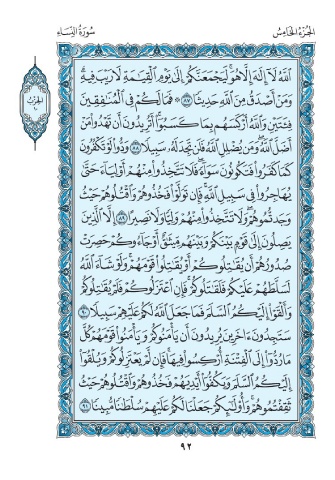 الجزء الخامس
سورة النساء
الحزب
اللَّهُ لَا إِلَٰهَ إِلَّا هُوَ ۚ لَيَجْمَعَنَّكُمْ إِلَىٰ يَوْمِ الْقِيَٰمَةِ لَا رَيْبَ فِيهِ ۗ
وَمَنْ أَصْدَقُ مِنَ اللَّهِ حَدِيثًا ٨٧ ۞ فَمَا لَكُمْ فِي الْمُنَٰفِقِينَ
فِئَتَيْنِ وَاللَّهُ أَرْكَسَهُم بِمَا كَسَبُوٓا۟ ۚ أَتُرِيدُونَ أَن تَهْدُوا۟ مَنْ
أَضَلَّ اللَّهُ ۖ وَمَن يُضْلِلِ اللَّهُ فَلَن تَجِدَ لَهُۥ سَبِيلًا ٨٨ وَدُّوا۟ لَوْ تَكْفُرُونَ
كَمَا كَفَرُوا۟ فَتَكُونُونَ سَوَآءً ۖ فَلَا تَتَّخِذُوا۟ مِنْهُمْ أَوْلِيَآءَ حَتَّىٰ
يُهَاجِرُوا۟ فِي سَبِيلِ اللَّهِ ۚ فَإِن تَوَلَّوْا۟ فَخُذُوهُمْ وَاقْتُلُوهُمْ حَيْثُ
وَجَدتُّمُوهُمْ ۖ وَلَا تَتَّخِذُوا۟ مِنْهُمْ وَلِيًّا وَلَا نَصِيرًا ٨٩ إِلَّا الَّذِينَ
يَصِلُونَ إِلَىٰ قَوْمٍ بَيْنَكُمْ وَبَيْنَهُم مِّيثَٰقٌ أَوْ جَآءُوكُمْ حَصِرَتْ
صُدُورُهُمْ أَن يُقَٰتِلُوكُمْ أَوْ يُقَٰتِلُوا۟ قَوْمَهُمْ ۚ وَلَوْ شَآءَ اللَّهُ
لَسَلَّطَهُمْ عَلَيْكُمْ فَلَقَٰتَلُوكُمْ ۚ فَإِنِ اعْتَزَلُوكُمْ فَلَمْ يُقَٰتِلُوكُمْ
وَأَلْقَوْا۟ إِلَيْكُمُ السَّلَمَ فَمَا جَعَلَ اللَّهُ لَكُمْ عَلَيْهِمْ سَبِيلًا ٩٠
سَتَجِدُونَ ءَاخَرِينَ يُرِيدُونَ أَن يَأْمَنُوكُمْ وَيَأْمَنُوا۟ قَوْمَهُمْ كُلَّ
مَا رُدُّوٓا۟ إِلَى الْفِتْنَةِ أُرْكِسُوا۟ فِيهَا ۚ فَإِن لَّمْ يَعْتَزِلُوكُمْ وَيُلْقُوٓا۟
إِلَيْكُمُ السَّلَمَ وَيَكُفُّوٓا۟ أَيْدِيَهُمْ فَخُذُوهُمْ وَاقْتُلُوهُمْ حَيْثُ
ثَقِفْتُمُوهُمْ ۚ وَأُو۟لَٰٓئِكُمْ جَعَلْنَا لَكُمْ عَلَيْهِمْ سُلْطَٰنًا مُّبِينًا ٩١
٩٢